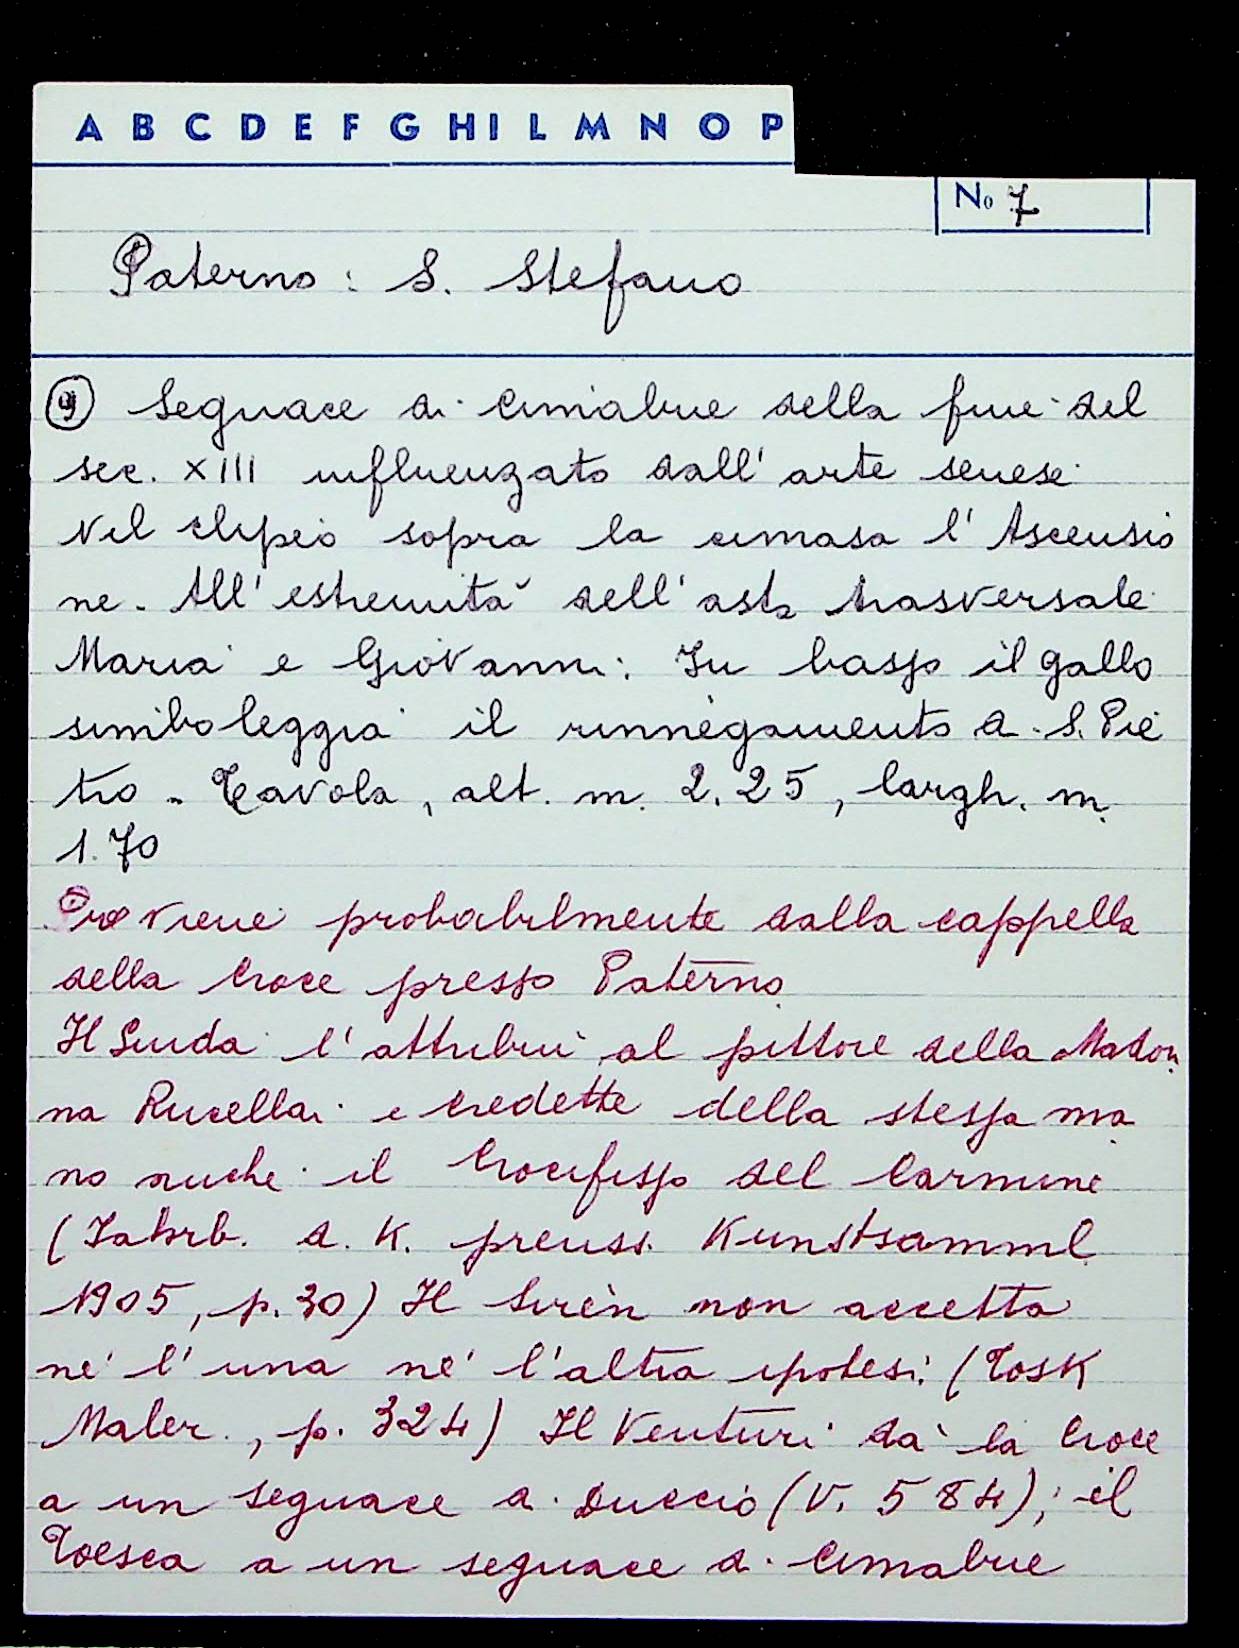 A B C D E F G H I L M N O P
No 7
Paterno: S. Stefano
9 Seguace di Cimabue della fine del
sec. XIII influenzato dall' arte senese
Nel clipeo sopra la cimasa l' Ascensio
ne. All' estremità dell' asta trasversale
Maria e Giovanni: In basso il gallo
simboleggia il rinnegamento di S. Pie
tro - Tavola, alt. m. 2.25, largh. m.
1.70
Proviene probabilmente dalla cappella
della Croce presso Paterno
Il Suida l' attribuì al pittore della Madon
na Rucellai e credette della stessa ma
no anche il Crocifisso del Carmine
(Jahrb. d. K. preuss. Kunstsamml
1905, p. 30) Il Sirèn non accetta
né l' una né l'altra ipotesi (Tosk
Maler., p. 324) Il Venturi dà la Croce
a un seguace di Duccio (V. 584); il
Toesca a un seguace di Cimabue